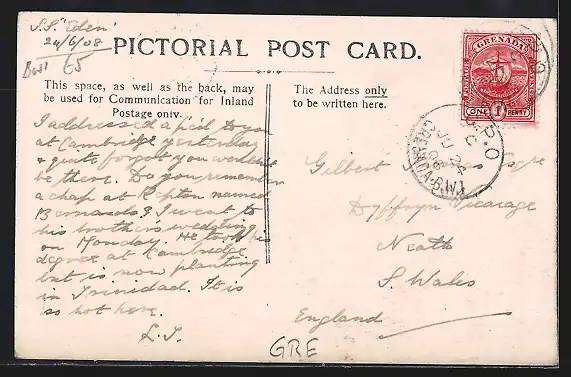 S.S. "Eden"
24/6/08
BWI E5
PICTORIAL POST CARD.
This space, as well as the back, may
be used for Communication for Inland
Postage only.
The Address only
to be written here.
POSTAGE GRENADA
ONE 1 PENNY
G.P.O
C
JU 24
08
GRENADA B.W.I
I addressed a p.c'd to you
at Cambridge yesterday
& quite forgot you wouldn't
be there. Do you remember
a chap at Repton named
Bernard? I went to
his brother's wedding
on Monday. He took his
degree at Cambridge
but is now planting
in Trinidad. It is
so hot here.
L.J.
Gilbert Esqre
Dyffryn Vicarage
Neath
S. Wales
England
GRE